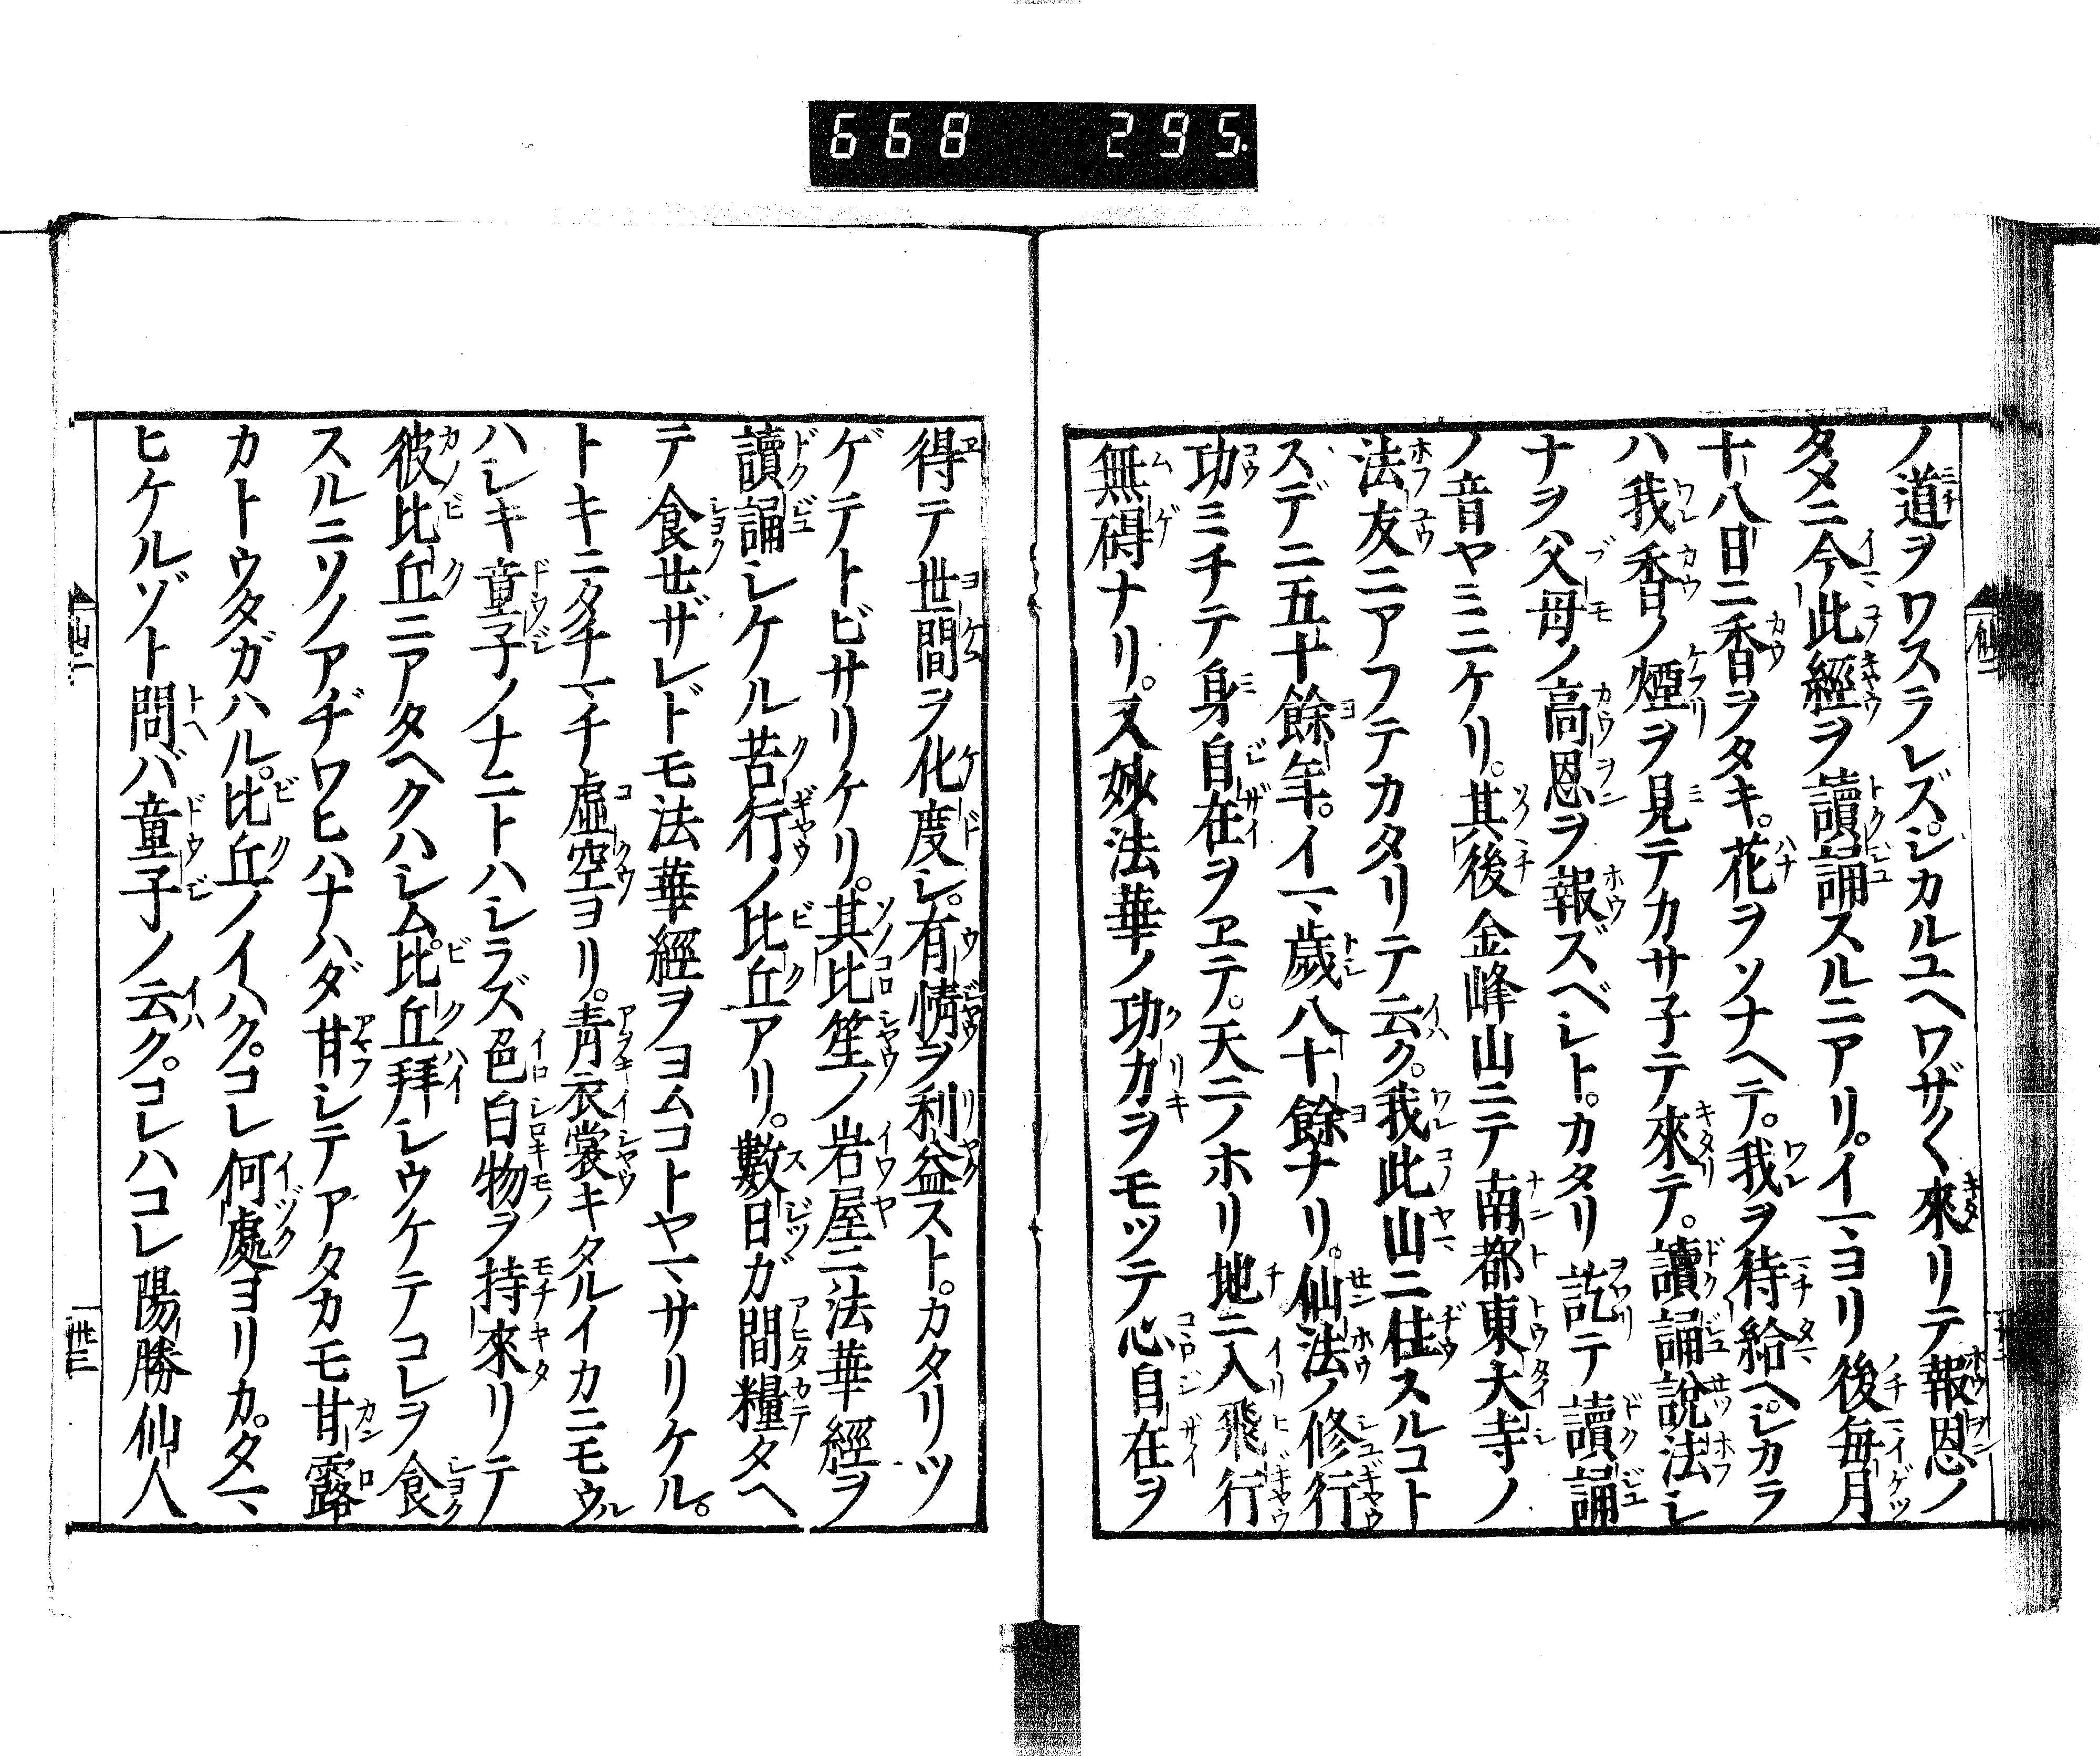 668 295.
ノ道ヲワスラレズ。シカルユヘワザ〳〵來リテ報恩ノ
タメニ今此經ヲ讀誦スルニアリ。イマヨリ後每月
十八日ニ香ヲタキ。花ヲソナヘテ。我ヲ待給ヘ。シカラ
ハ我香ノ煙ヲ見テカサ子テ來テ。讀誦說法シ
ナヲ父母ノ高恩ヲ報ズベシト。カタリ訖テ讀誦
ノ音ヤミニケリ。其後金峰山ニテ南都東大寺ノ
法友ニアフテカタリテ云ク。我此山ニ住スルコト
スデニ五十餘年。イマ歲八十餘ナリ。仙法ノ修行
功ミチテ身自在ヲヱテ。天ニノホリ地ニ入飛行
無碍ナリ。又妙法華ノ功力ヲモツテ心自在ヲ
得テ世間ヲ化度シ。有情ヲ利益スト。カタリツ
ゲテトビサリケリ。其比笙ノ岩屋ニ法華經ヲ
讀誦シケル苦行ノ比丘アリ。數日ガ間糧タヘ
テ食セザレドモ法華經ヲヨムコトヤマサリケル。
トキニタチマチ虛空ヨリ。靑衣裳キタルイカニモウル
ハシキ童子ノナニトハシラズ色白物ヲ持來リテ
彼比丘ニアタヘクハシム。比丘拜シウケテコレヲ食
スルニソノアヂワヒハナハダ甘シテアタカモ甘露
カトウタガハル。比丘ノイハク。コレ何處ヨリカ。タマ
ヒケルゾト問バ童子ノ云ク。コレハコレ陽勝仙人